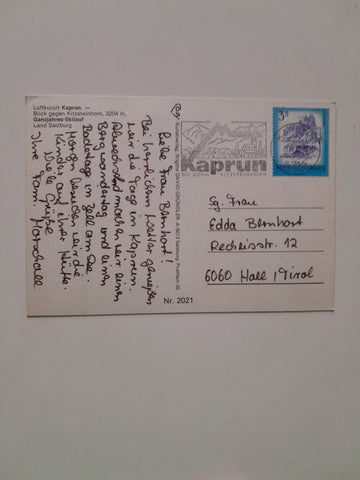 Luftkurort Kaprun. —
Blick gegen Kitzsteinhorn, 3204 m,
Ganzjahres-Skilauf
Land Salzburg
Liebe Frau Bernhort!
Bei herrlichem Wetter genießen
wir die Tage in Kaprun.
Abwechselnd machen wir einen
Bergwandertag und einen
Badetag in Zell am See.
Morgen besuchen wir die
Kinder auf einer Hütte.
Viele Grüße
Ihre Fam. Marschall
Kaprun
KITZSTEINHORN
3 S
REPUBLIK ÖSTERREICH
Sg. Frau
Edda Bernhort
Recheisstr. 12
6060 Hall / Tirol
Nr. 2021